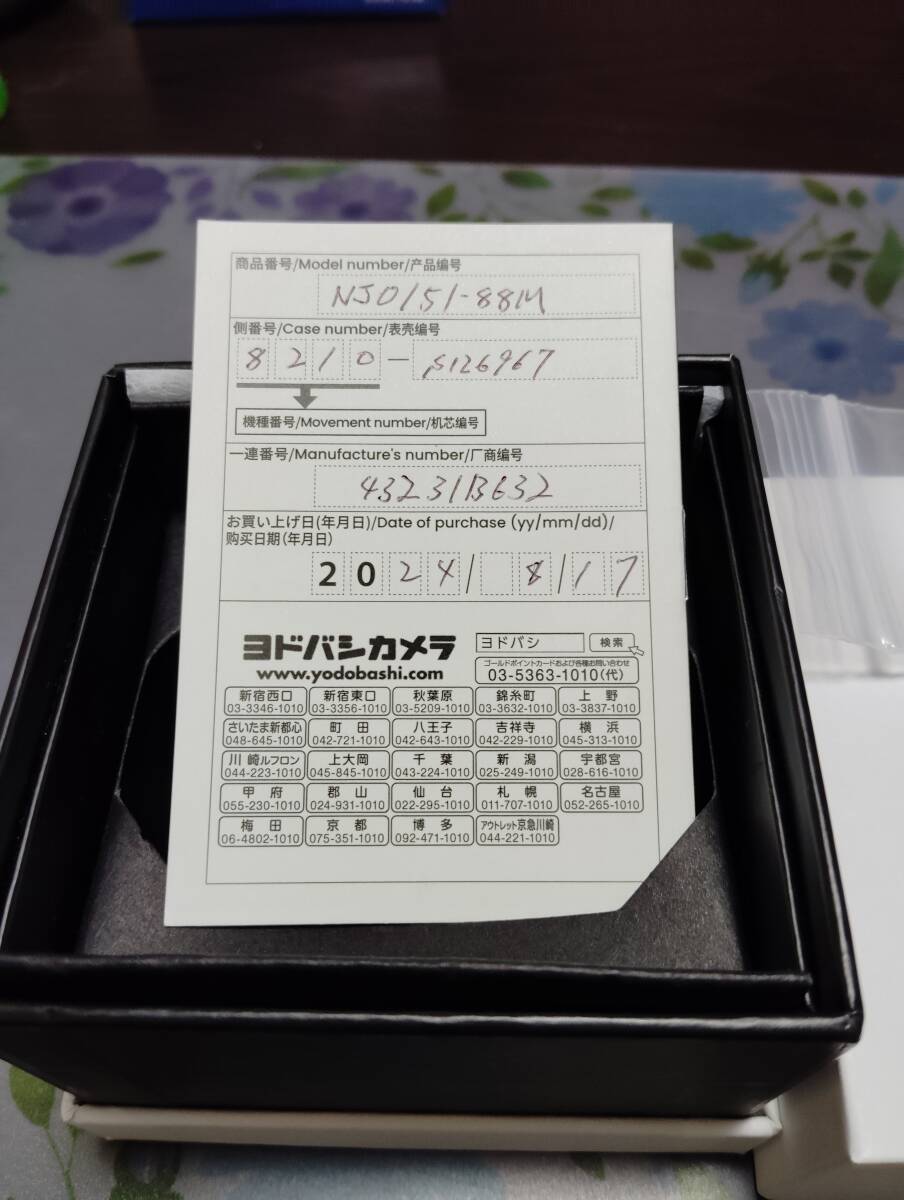 商品番号/Model number/产品编号
NJ0151-88M
側番号/Case number/表壳编号
8210-S126967
機種番号/Movement number/机芯编号
一連番号/Manufacture's number/厂商编号
43231B632
お買い上げ日(年月日)/Date of purchase (yy/mm/dd)/
购买日期(年月日)
2024/ 8/17
ヨドバシカメラ ヨドバシ 検索
www.yodobashi.com ゴールドポイントカードおよび各種お問い合わせ
03-5363-1010(代)
新宿西口 新宿東口 秋葉原 錦糸町 上野
03-3346-1010 03-3356-1010 03-5209-1010 03-3632-1010 03-3837-1010
さいたま新都心 町田 八王子 吉祥寺 横浜
048-645-1010 042-721-1010 042-643-1010 042-229-1010 045-313-1010
川崎ルフロン 上大岡 千葉 新潟 宇都宮
044-223-1010 045-845-1010 043-224-1010 025-249-1010 028-616-1010
甲府 郡山 仙台 札幌 名古屋
055-230-1010 024-931-1010 022-295-1010 011-707-1010 052-265-1010
梅田 京都 博多 アウトレット京急川崎
06-4802-1010 075-351-1010 092-471-1010 044-221-1010